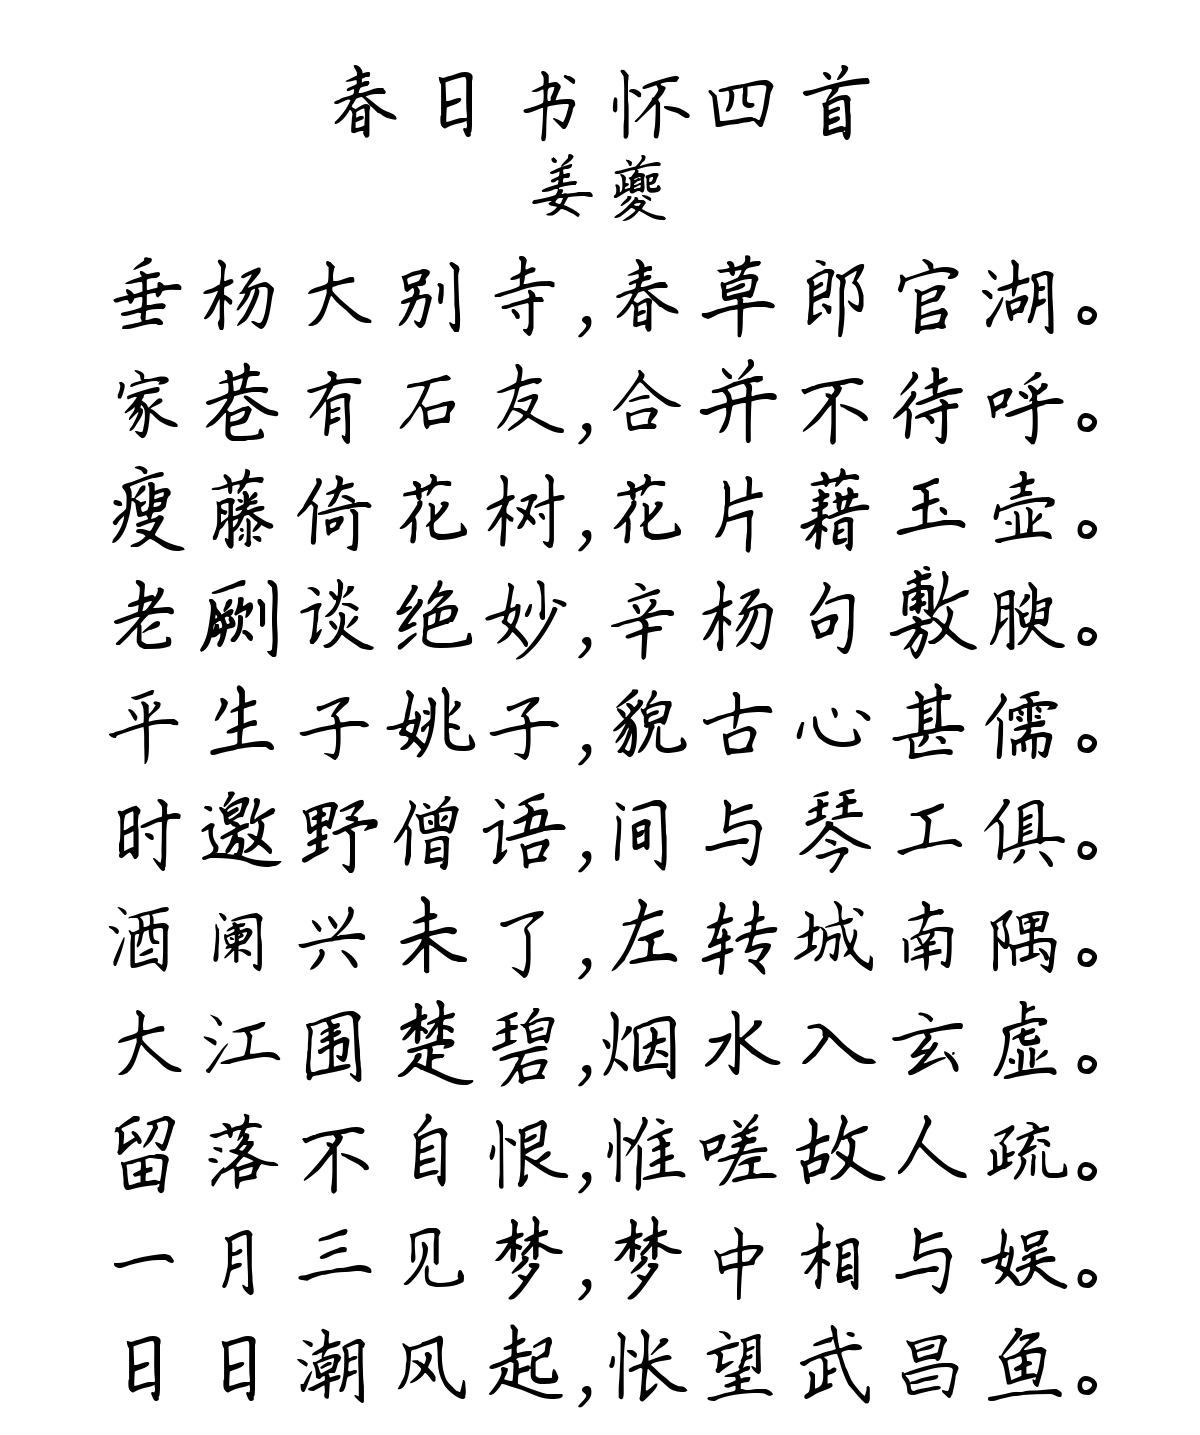 春日书怀四首
姜夔
垂杨大别寺,春草郎官湖。
家巷有石友,合并不待呼。
瘦藤倚花树,花片藉玉壶。
老劂谈绝妙,辛杨句敷腴。
平生子姚子,貌古心甚儒。
时邀野僧语,间与琴工俱。
酒阑兴未了,左转城南隅。
大江围楚碧,烟水入玄虚。
留落不自恨,惟嗟故人疏。
一月三见梦,梦中相与娱。
日日潮风起,怅望武昌鱼。